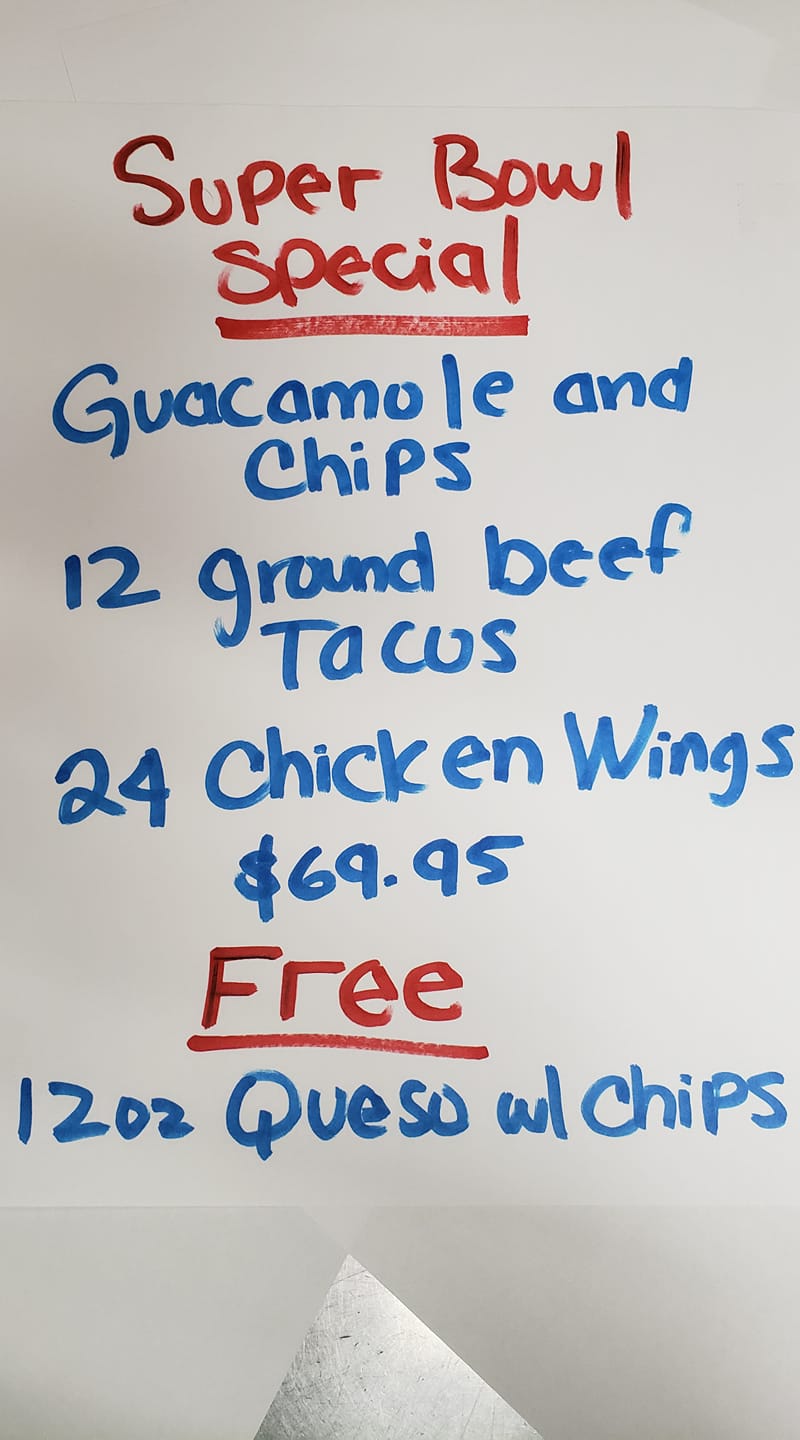 Super Bowl
Special
Guacamole and
Chips
12 ground beef
Tacos
24 Chicken Wings
$69.95
Free
12oz Queso w/ Chips